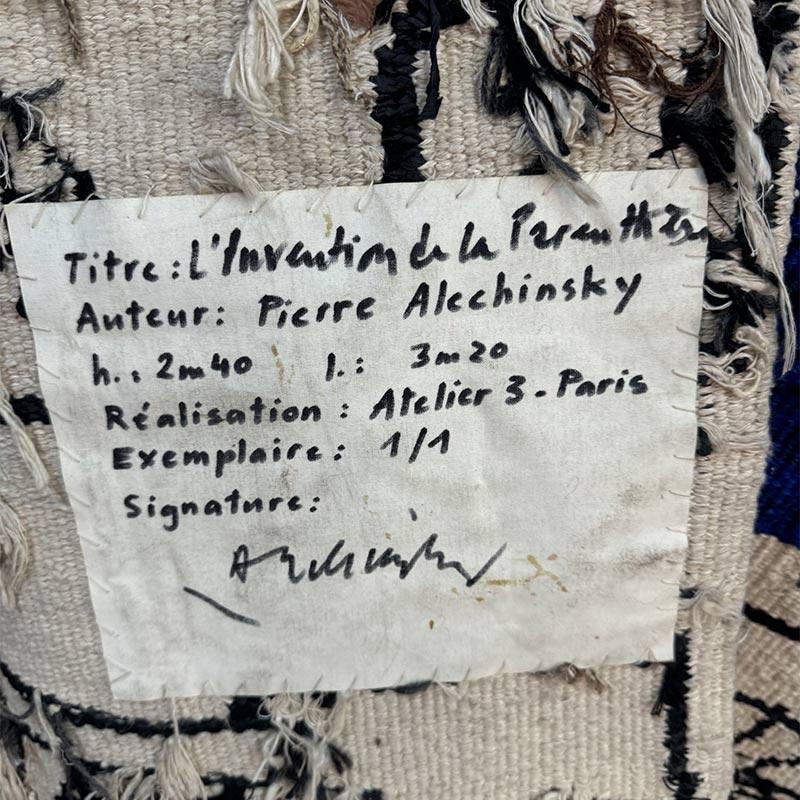 Titre: L'Invention de la Parenthèse
Auteur: Pierre Alechinsky
h.: 2m40 l.: 3m20
Réalisation: Atelier 3-Paris
Exemplaire: 1/1
Signature:
Alechinsky